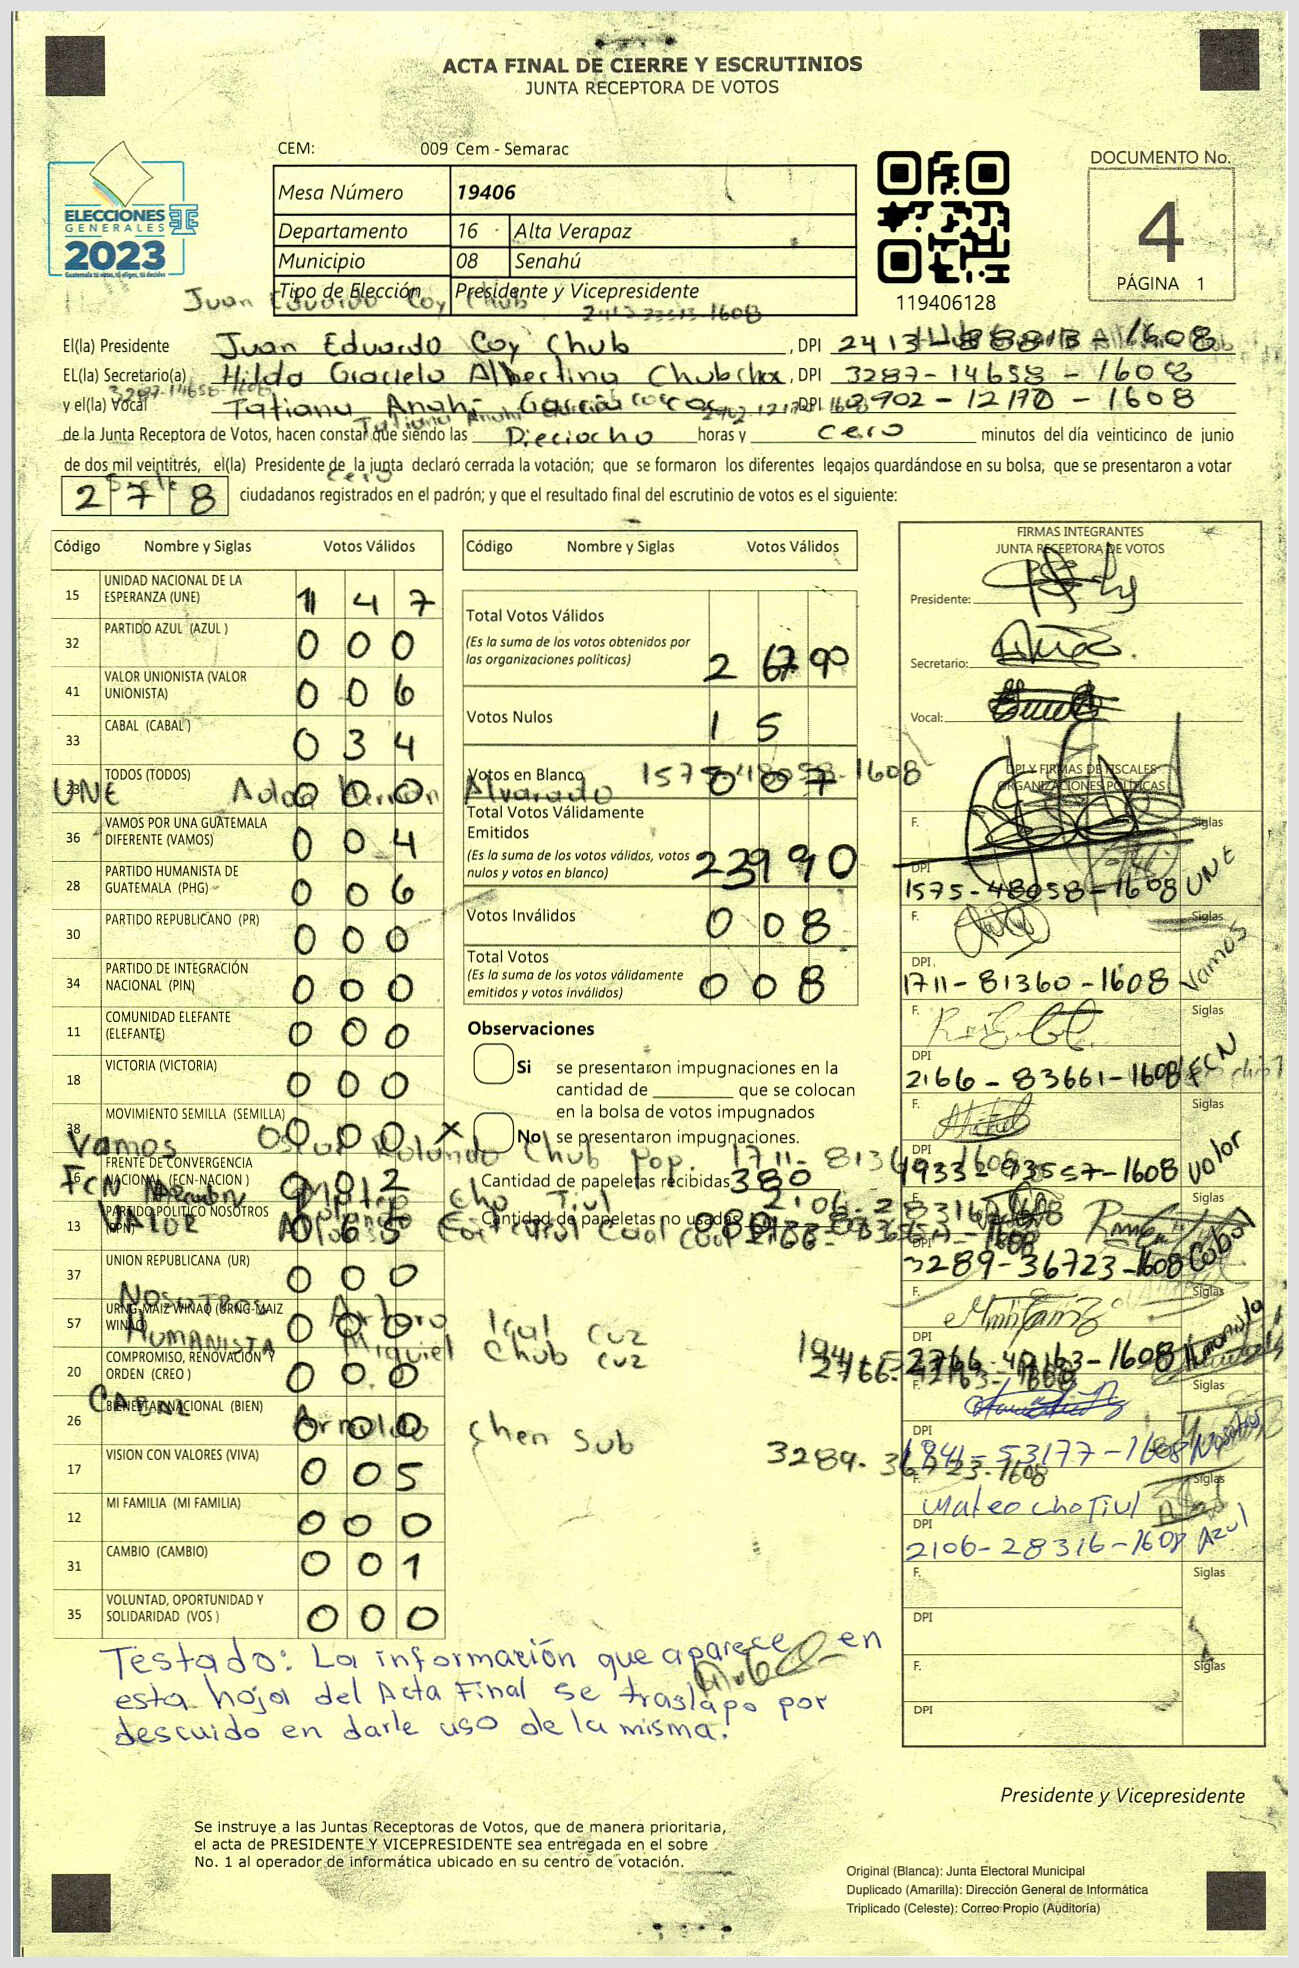 ACTA FINAL DE CIERRE Y ESCRUTINIOS
JUNTA RECEPTORA DE VOTOS
CEM: 009 Cem - Semarac
ELECCIONES
GENERALES
2023
Guatemala tú votas, tú eliges, tú decides
Mesa Número 19406
Departamento 16 Alta Verapaz
Municipio 08 Senahú
Tipo de Elección Presidente y Vicepresidente
119406128
DOCUMENTO No.
4
PÁGINA 1
Juan Eduardo Coy Chub
El(la) Presidente Juan Eduardo Coy Chub, DPI 2413- - 1608
EL(la) Secretario(a) Hilda Graciela Albertina Chub, DPI 3287-14658-1608
y el(la) Vocal Tatiana Anahi García coc DPI 2902-12170-1608
de la Junta Receptora de Votos, hacen constar que siendo las Dieciocho horas y cero minutos del día veinticinco de junio
de dos mil veintitrés, el(la) Presidente de la junta declaró cerrada la votación; que se formaron los diferentes legajos quardándose en su bolsa, que se presentaron a votar
278 ciudadanos registrados en el padrón; y que el resultado final del escrutinio de votos es el siguiente:
Código Nombre y Siglas Votos Válidos
15 UNIDAD NACIONAL DE LA ESPERANZA (UNE) 1 4 7
32 PARTIDO AZUL (AZUL ) 0 0 0
41 VALOR UNIONISTA (VALOR UNIONISTA) 0 0 6
33 CABAL (CABAL ) 0 3 4
23 TODOS (TODOS) 0 0 0
36 VAMOS POR UNA GUATEMALA DIFERENTE (VAMOS) 0 0 4
28 PARTIDO HUMANISTA DE GUATEMALA (PHG) 0 0 6
30 PARTIDO REPUBLICANO (PR) 0 0 0
34 PARTIDO DE INTEGRACIÓN NACIONAL (PIN) 0 0 0
11 COMUNIDAD ELEFANTE (ELEFANTE) 0 0 0
18 VICTORIA (VICTORIA) 0 0 0
38 MOVIMIENTO SEMILLA (SEMILLA) 0 0 0
16 FRENTE DE CONVERGENCIA NACIONAL (FCN-NACION ) 0 0 2
13 PARTIDO POLITICO NOSOTROS (PPN) 0 6 5
37 UNION REPUBLICANA (UR) 0 0 0
57 URNG-MAIZ WINAQ (URNG-MAIZ WINAQ) 0 0 0
20 COMPROMISO, RENOVACIÓN Y ORDEN (CREO ) 0 0 0
26 BIENESTAR NACIONAL (BIEN) 0 0 0
17 VISION CON VALORES (VIVA) 0 0 5
12 MI FAMILIA (MI FAMILIA) 0 0 0
31 CAMBIO (CAMBIO) 0 0 1
35 VOLUNTAD, OPORTUNIDAD Y SOLIDARIDAD (VOS ) 0 0 0
Código Nombre y Siglas Votos Válidos
Total Votos Válidos
(Es la suma de los votos obtenidos por las organizaciones políticas)
Votos Nulos 1 5
Votos en Blanco 0 0 7
Total Votos Válidamente Emitidos
(Es la suma de los votos válidos, votos nulos y votos en blanco)
Votos Inválidos 0 0 8
Total Votos 0 0 8
(Es la suma de los votos válidamente emitidos y votos inválidos)
Observaciones
Si se presentaron impugnaciones en la
cantidad de ________ que se colocan
en la bolsa de votos impugnados
X No se presentaron impugnaciones.
Cantidad de papeletas recibidas 380
Cantidad de papeletas no usadas
UNE Alvarado 1575-48058-1608
Vamos Oscar Rolando Chub Pop. 1711-
FCN Mateo cho Tiul 2106-
VALOR
NOSOTROS Arturo Ical cuz
HUMANISTA Miguel Chub cuz
CABAL Arnoldo Chen Sub 3289-
FIRMAS INTEGRANTES
JUNTA RECEPTORA DE VOTOS
Presidente:
Secretario:
Vocal:
DPI Y FIRMAS DE FISCALES
ORGANIZACIONES POLÍTICAS
F. Siglas
DPI 1575-48058-1608 UNE
F. Siglas
DPI 1711-81360-1608 Vamos
F. Siglas
DPI 2166-83661-1608 FCN
F. Siglas
DPI 1933-93557-1608 Valor
F. Siglas
DPI 3289-36723-1608
F. Siglas
DPI 2766-42163-1608 Humanista
F. Siglas
DPI 1941-53177-1608 Nosotros
F. Mateo cho Tiul Siglas
DPI 2106-28316-1608 Azul
F. Siglas
DPI
F. Siglas
DPI
Testado: La información que aparece en
esta hoja del Acta Final se traslapo por
descuido en darle uso de la misma.
Presidente y Vicepresidente
Se instruye a las Juntas Receptoras de Votos, que de manera prioritaria,
el acta de PRESIDENTE Y VICEPRESIDENTE sea entregada en el sobre
No. 1 al operador de informática ubicado en su centro de votación.
Original (Blanca): Junta Electoral Municipal
Duplicado (Amarilla): Dirección General de Informática
Triplicado (Celeste): Correo Propio (Auditoría)